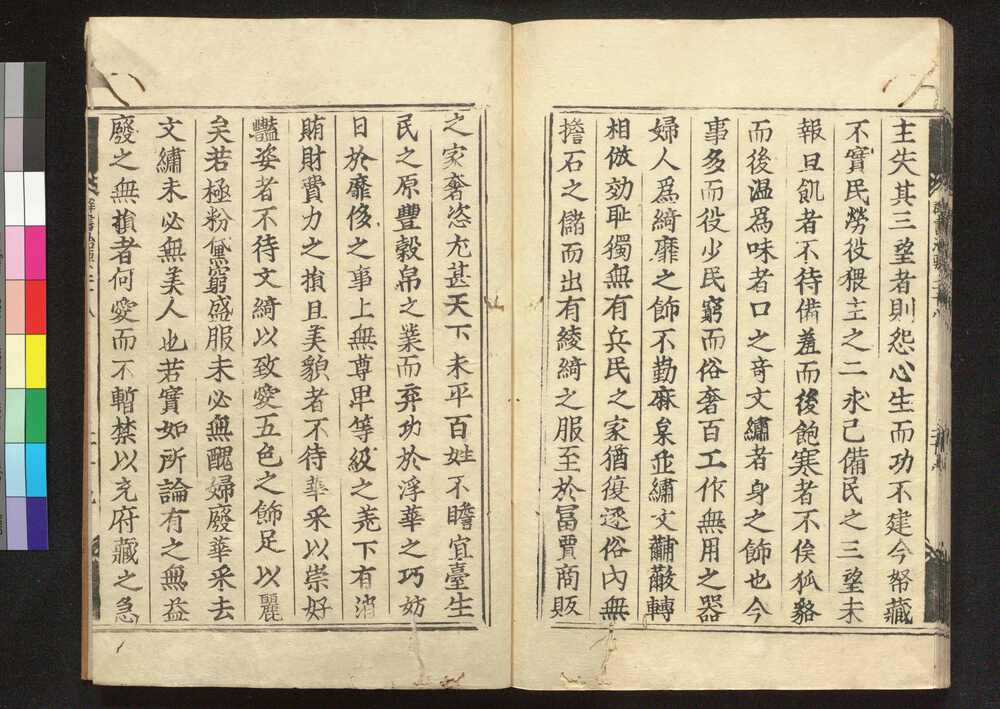 主失其三望者則怨心生而功不建今帑藏
不實民勞役猥主之二求已備民之三望未
報且飢者不待備羞而後飽寒者不俟狐貉
而後温爲味者口之奇文繡者身之飾也今
事多而役少民窮而俗奢百工作無用之器
婦人爲綺靡之飾不勤麻枲並繡文黼黻轉
相倣効耻獨無有兵民之家猶復逐俗內無
擔石之儲而出有綾綺之服至於冨賈商販
之家奢恣尤甚天下未平百姓不贍宜臺生
民之原豐穀帛之業而弃功於浮華之巧妨
日於靡侈之事上無尊卑等級之差下有消
賄財費力之損且美貌者不待華采以崇好
豔姿者不待文綺以致愛五色之飾足以麗
矣若極粉黛窮盛服未必無醜婦廢華采去
文繡未必無美人也若實如所論有之無益
廢之無損者何愛而不暫禁以充府藏之急